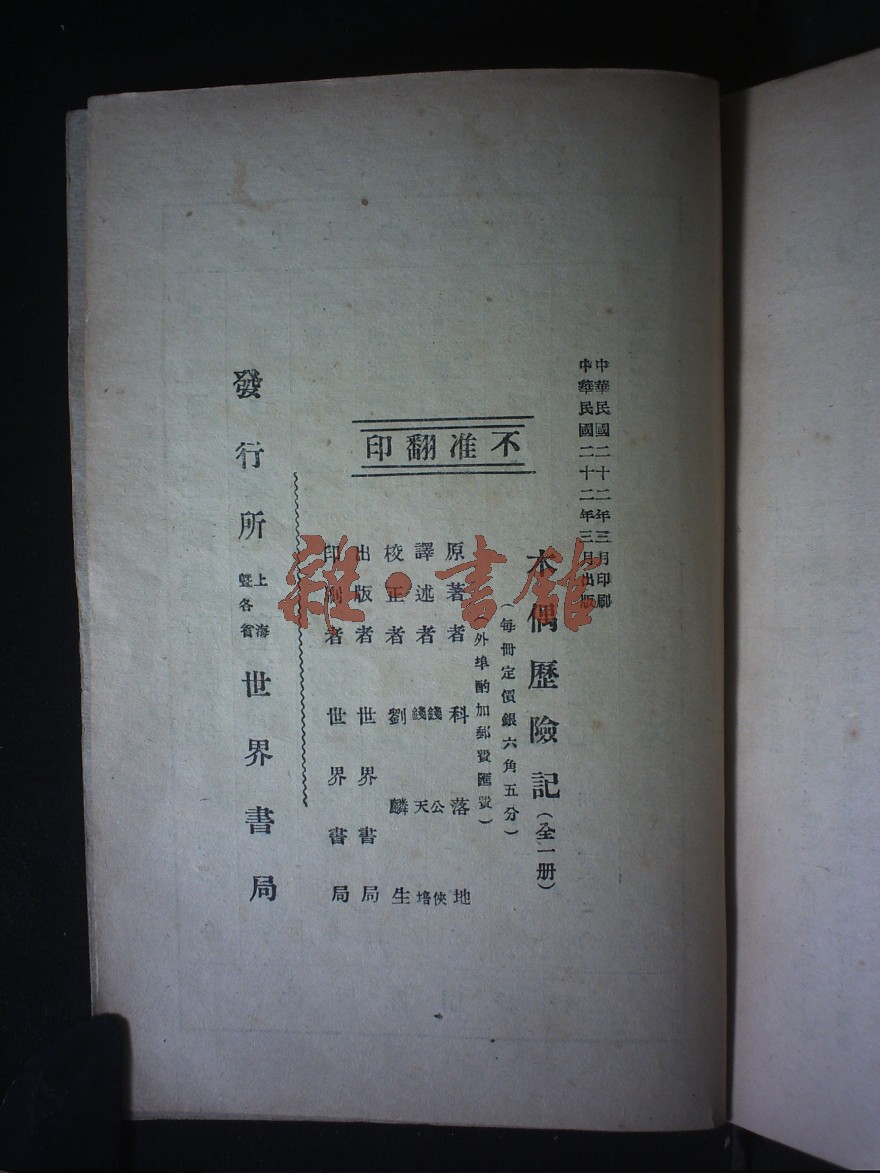 中華民國二十二年三月印刷
中華民國二十二年三月出版
木偶歷險記(全一册)
(每冊定價銀六角五分)
(外埠酌加郵費匯費)
不准翻印
原著者 科落地
譯述者 錢公俠 錢天培
校正者 劉麟生
出版者 世界書局
印刷者 世界書局
發行所 上海暨各省 世界書局
雜·書館